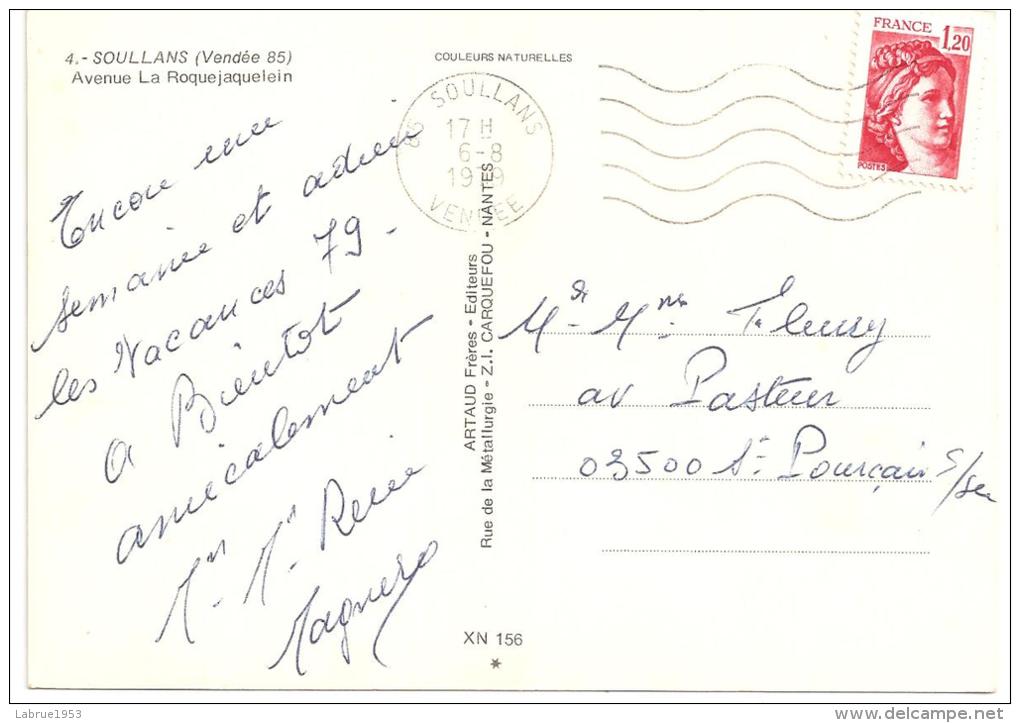 4.- SOULLANS (Vendée 85)
Avenue La Roquejaquelein
COULEURS NATURELLES
85 SOULLANS
17 H
6-8
1979
VENDEE
FRANCE
1,20
POSTES
Encore une
semaine et adieu
les Vacances 79 -
A Bientot
amicalement
René
ARTAUD Frères - Editeurs
Rue de la Métallurgie - Z.I. CARQUEFOU - NANTES
Mr - Mme Fleury
av Pasteur
03500 St Pourçain s/
XN 156
Labrue1953
delcampe.net